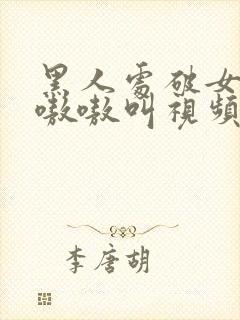 黑人處破女
嗷嗷叫視頻
李唐胡